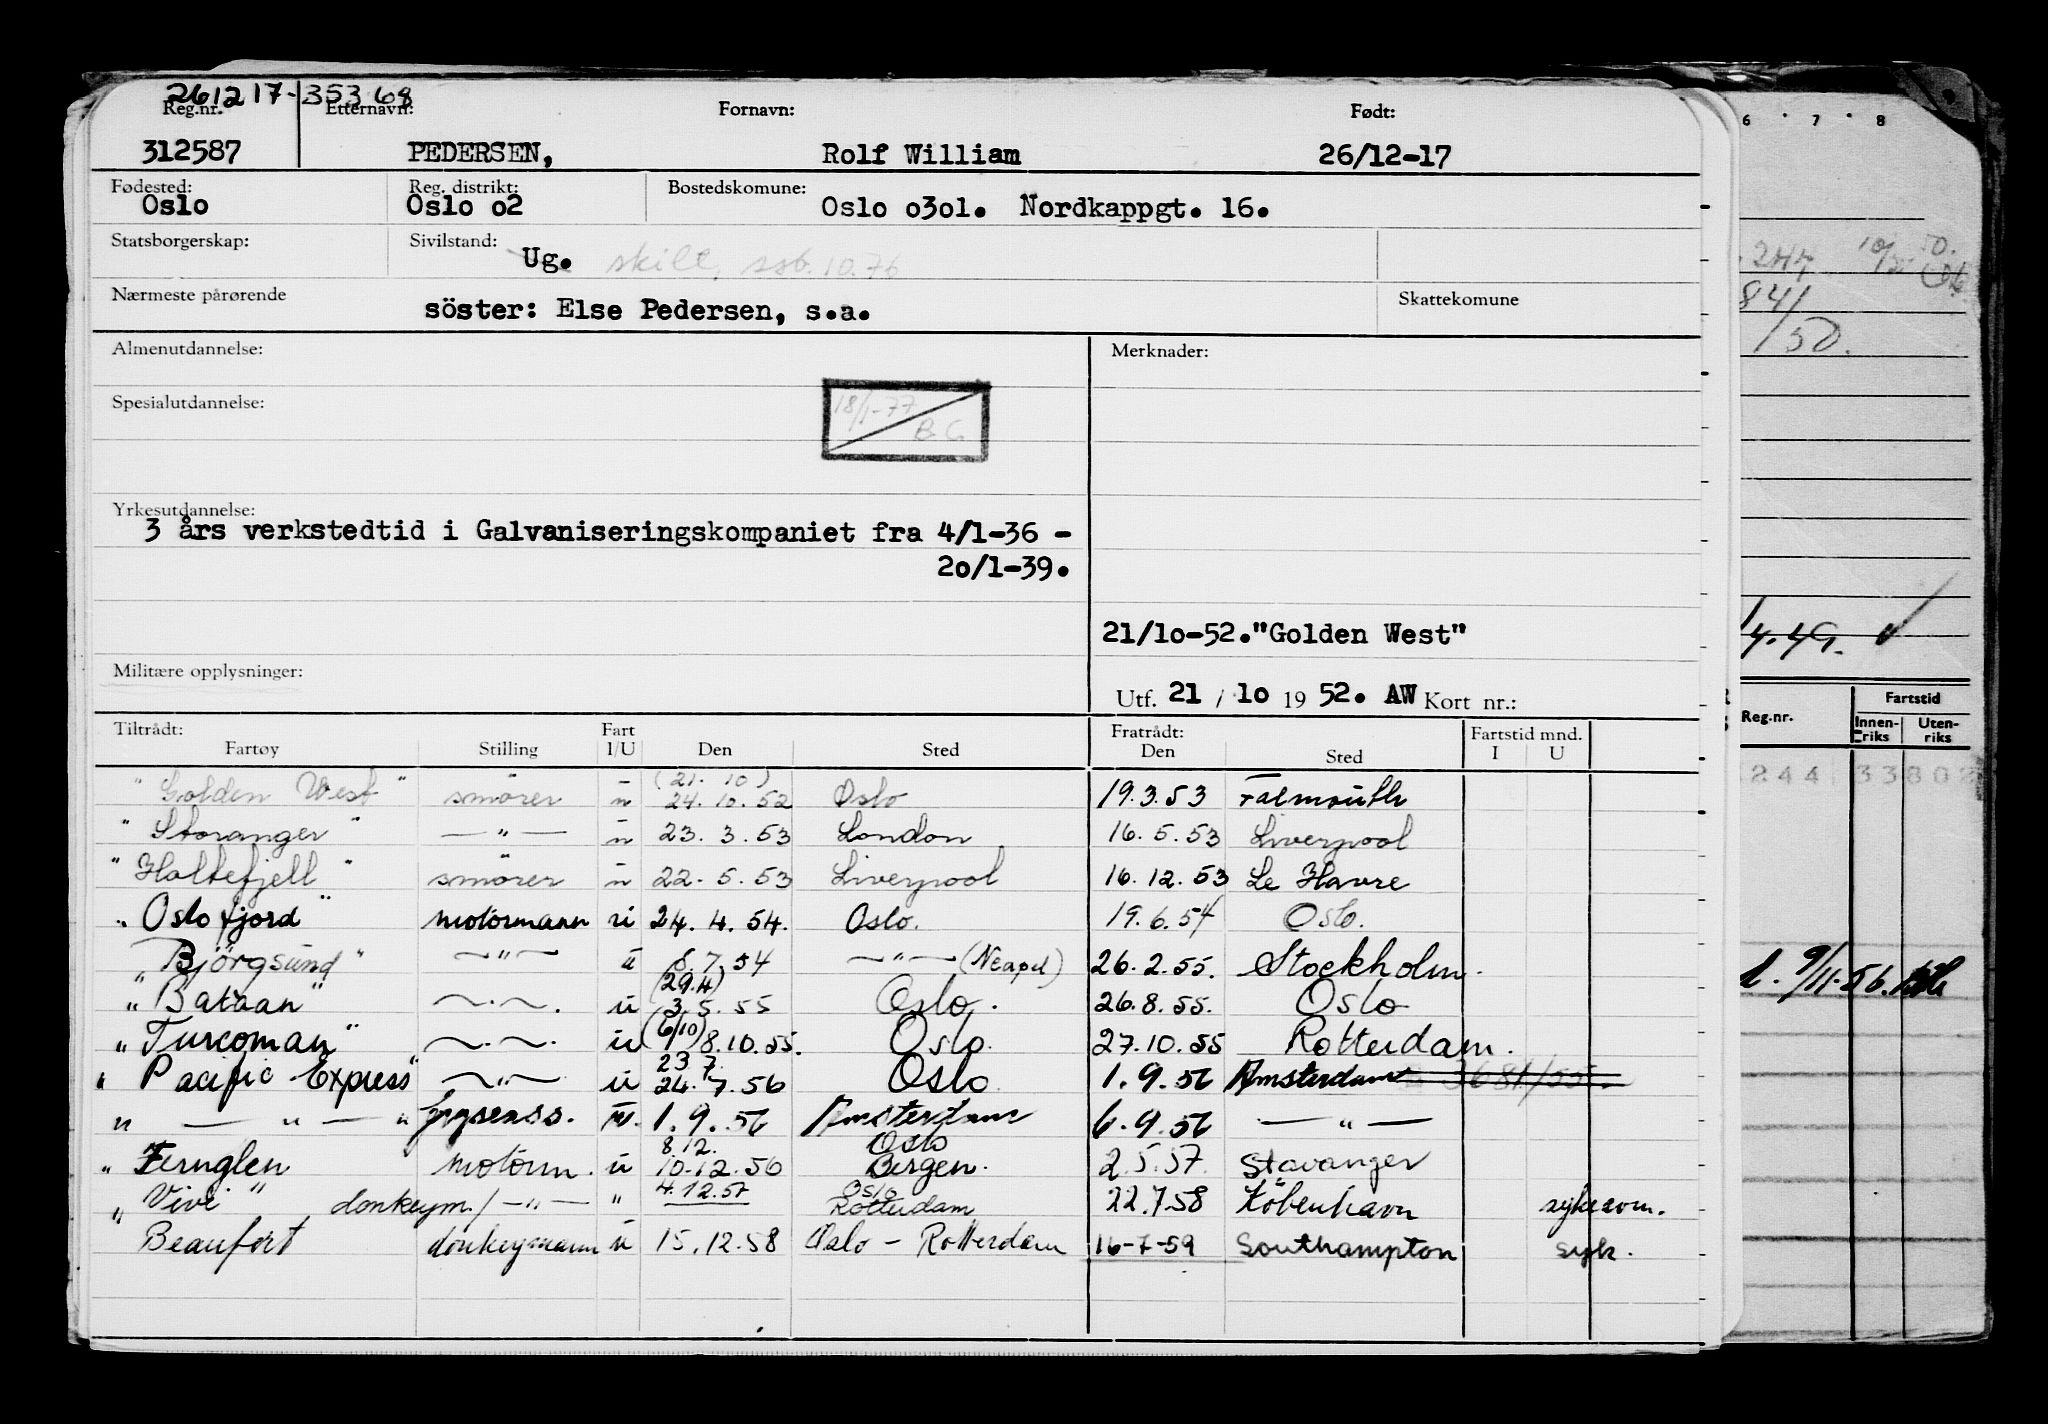 261217-35368
Reg.nr. Etternavn: Fornavn: Født:
312587 PEDERSEN, Rolf William 26/12-17
Fødested: Reg. distrikt: Bostedskomune:
Oslo Oslo o2 Oslo o3o1. Nordkappgt. 16.
Statsborgerskap: Sivilstand:
Ug. skilt, ssb. 10.76
Nærmeste pårørende Skattekomune
söster: Else Pedersen, s.a.
Almenutdannelse: Merknader:
Spesialutdannelse:
18/1-77
B G
Yrkesutdannelse:
3 års verkstedtid i Galvaniseringskompaniet fra 4/1-36 -
2o/1-39.
21/1o-52."Golden West"
Militære opplysninger:
Utf. 21 / 1o 19 52. AW Kort nr.:
Tiltrådt: Fart Fratrådt: Fartstid mnd.
Fartøy Stilling I/U Den Sted Den Sted I U
(21. 10)
"Golden West" smører u 24.10.52 Oslo 19.3.53 Falmouth
"Storanger" — " — u 23. 3. 53 London 16. 5. 53 Liverpool
"Holtefjell" smører u 22. 5. 53 Liverpool 16. 12. 53 Le Havre
"Oslofjord" motormann u 24. 4. 54. Oslo. 19. 6. 54 Oslo.
"Björgsund" — " — u 8. 7. 54 — " — (Neapel) 26. 2. 55. Stockholm.
(29.4)
"Bataan" — " — . u 3. 5. 55 Oslo. 26. 8. 55. Oslo
"Turcoman" — " — u (6/10) 8. 10. 55. Oslo. 27. 10. 55 Rotterdam.
23 7.
"Pacific Express" — " — u 24. 7. 56 Oslo 1. 9. 56 Amsterdam
" — " — " u. 1. 9. 56 Amsterdam 6. 9. 56 — " —
8.12. Oslo
"Fernglen motorm. u 10.12.56 Bergen. 2.5.57. Stavanger
4.12.57 Oslo
"Vivi" donkeym./ — " — " Rotterdam 22.7.58 Köbenhavn
Beaufort donkeymann u 15. 12. 58 Oslo - Rotterdam 16-7-59 Southampton syk.
6 . 7 . 8
247
841
/50.
4.49.
Reg.nr. Fartstid
Innen-riks Uten-riks
244 33802
9/11.56.